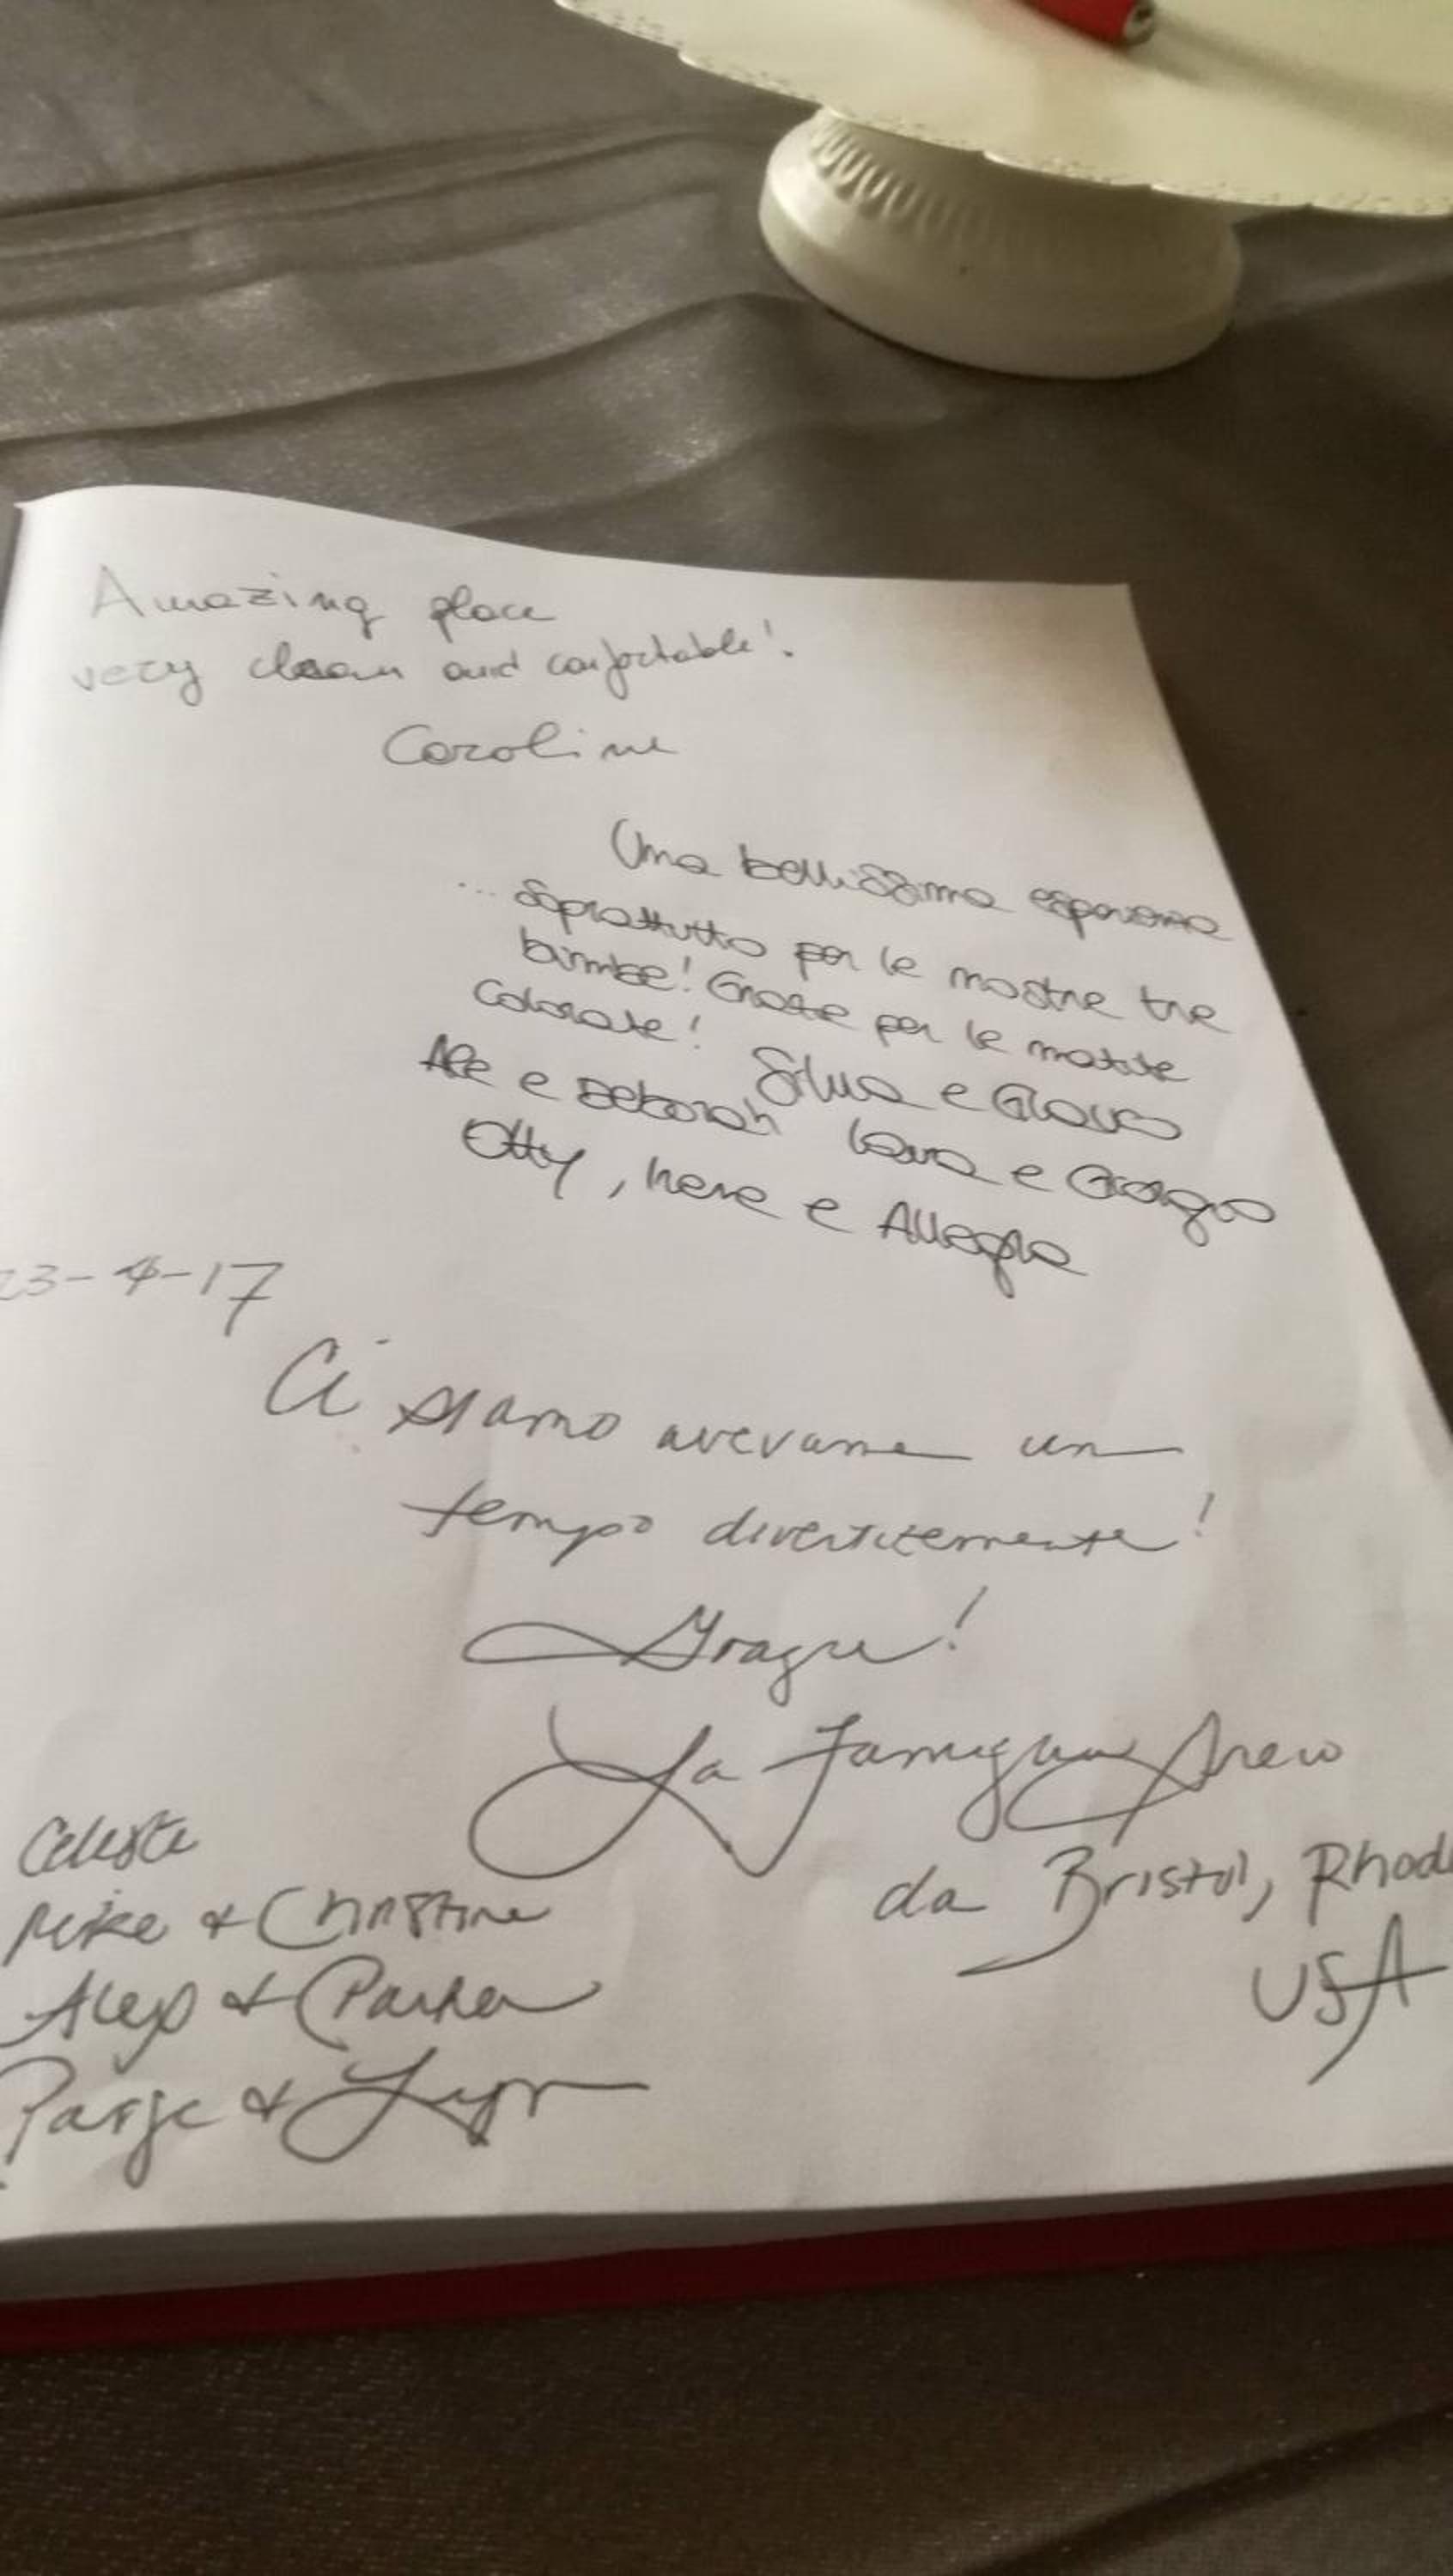 Amazing place
very clean and confortable!.
Caroline
Una bellissima esperienza
... Soprattutto per le nostre tre
bimbe! Grazie per le matite
Colorate! Silvia e Glauco
Ale e Deborah Lava e Giorgio
Otty, Nene e Allegra
23-4-17
Ci siamo avevame un
tempo divertitemente!
Grazie!
La Famiglia
da Bristol, Rhod
USA
Celeste
Mike & Christine
& Parker
Paige &